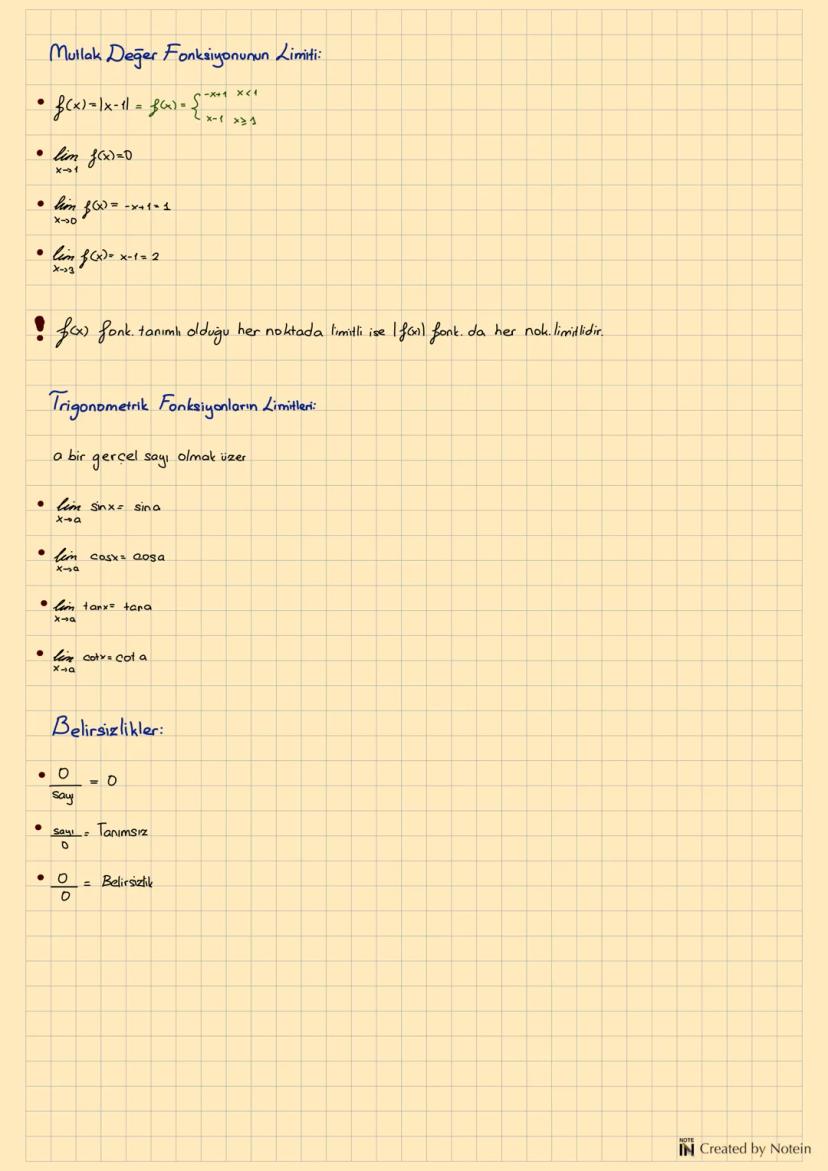 Mutlak Değer Fonksiyonunun Limiti:
• f(x)=|x-1| = f(x) = { -x+1 x<1
x-1 x≥1
• lim f(x)=0
x→1
• lim f(x)= -x+1=1
x→0
• lim f(x)= x-1=2
x→3
! f(x) fonk. tanımlı olduğu her noktada limitli ise |f(x)| font. da her nok. limitlidir.
Trigonometrik Fonksiyonların Limitleri:
a bir gerçel sayı olmak üzer
• lim sinx= sina
x→a
• lim cosx= cosa
x→a
• lim tanx= tana
x→a
• lim cotx= cot a
x→a
Belirsizlikler:
• 0
— = 0
sayı
• sayı
— = Tanımsız
0
• 0
— = Belirsizlik
0
NOTE IN Created by Notein